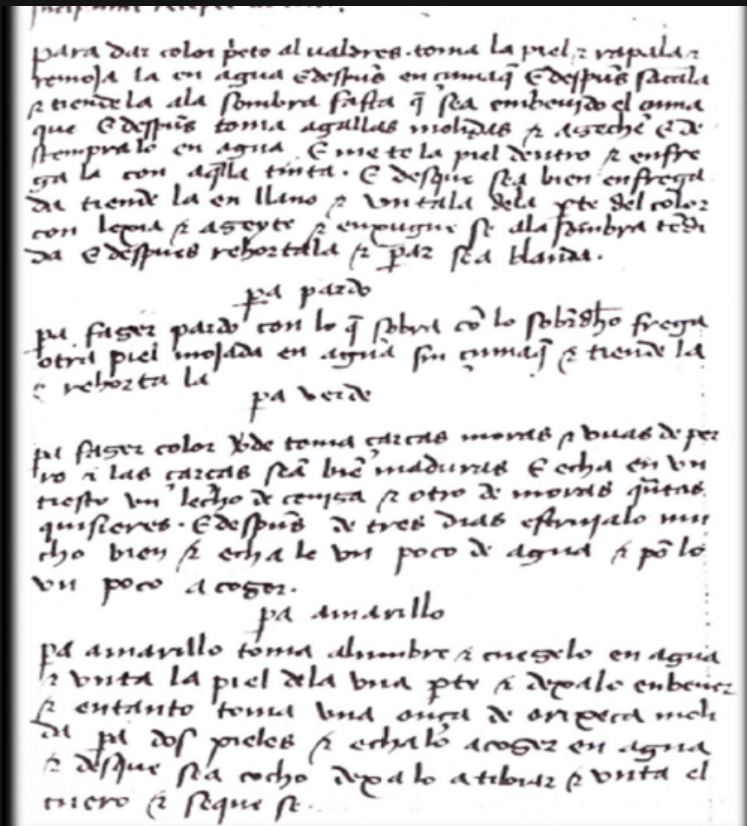 para dar color p̃eto al ualdres. toma la piel ⁊ rapala ⁊
remoja la en agua E despũs en çumaq̃ E despũs sacala
⁊ tiendela ala sombra fasta q̃ sea embeuido el çuma
que E despũs toma agallas molidas ⁊ azeche E de
stempralo en agua. E mete la piel dentro ⁊ enfre
ga la con aq̃lla tinta. E desque sea bien enfrega
da tiende la en llano ⁊ vntala dela p̱te del color
con lexia ⁊ azeyte ⁊ enxugue se ala sombra tẽdi
da E despues rehortala ⁊ p̱ar sea blanda.
p̱a pardo
p̱a fazer pardo con lo q̃ sobra cõ lo sobr̃dho frega
otra piel mojada en agua sin çumaq̃ ⁊ tiende la
⁊ rehorta la
p̱a verde
p̱a fazer color ṽde toma çarças moras ⁊ vuas de per
ro ⁊ las çarças seã biẽ maduras E echa en vn
tiesto vn lecho de ceniza ⁊ otro de moras q̃ntas
quisieres. E despũs de tres dias estrujalo mu
cho bien ⁊ echa le vn poco de agua ⁊ põ lo
vn poco a cozer.
p̱a amarillo
p̱a amarillo toma alumbre ⁊ cuezelo en agua
⁊ vnta la piel dela vna p̱te ⁊ dexalo enbeuer
⁊ entanto toma vna onça de orixeca moli
da p̱a dos pieles ⁊ echalo a cozer en agua
⁊ desque sea cocho dexa lo atibiar ⁊ vnta el
cuero ⁊ seque se.